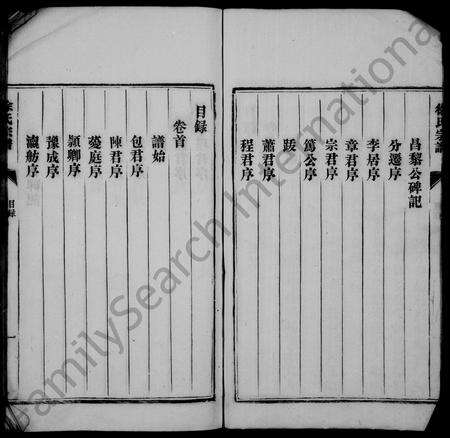 徐氏宗譜
昌黎公碑記
分遷序
李居序
章君序
宗君序
篤公序
跋
蕭君序
程君序
目録
卷首
譜始
包君序
陳君序
菱庭序
潁卿序
豫成序
瀛舫序
徐氏宗譜
目録
一
FamilySearch International